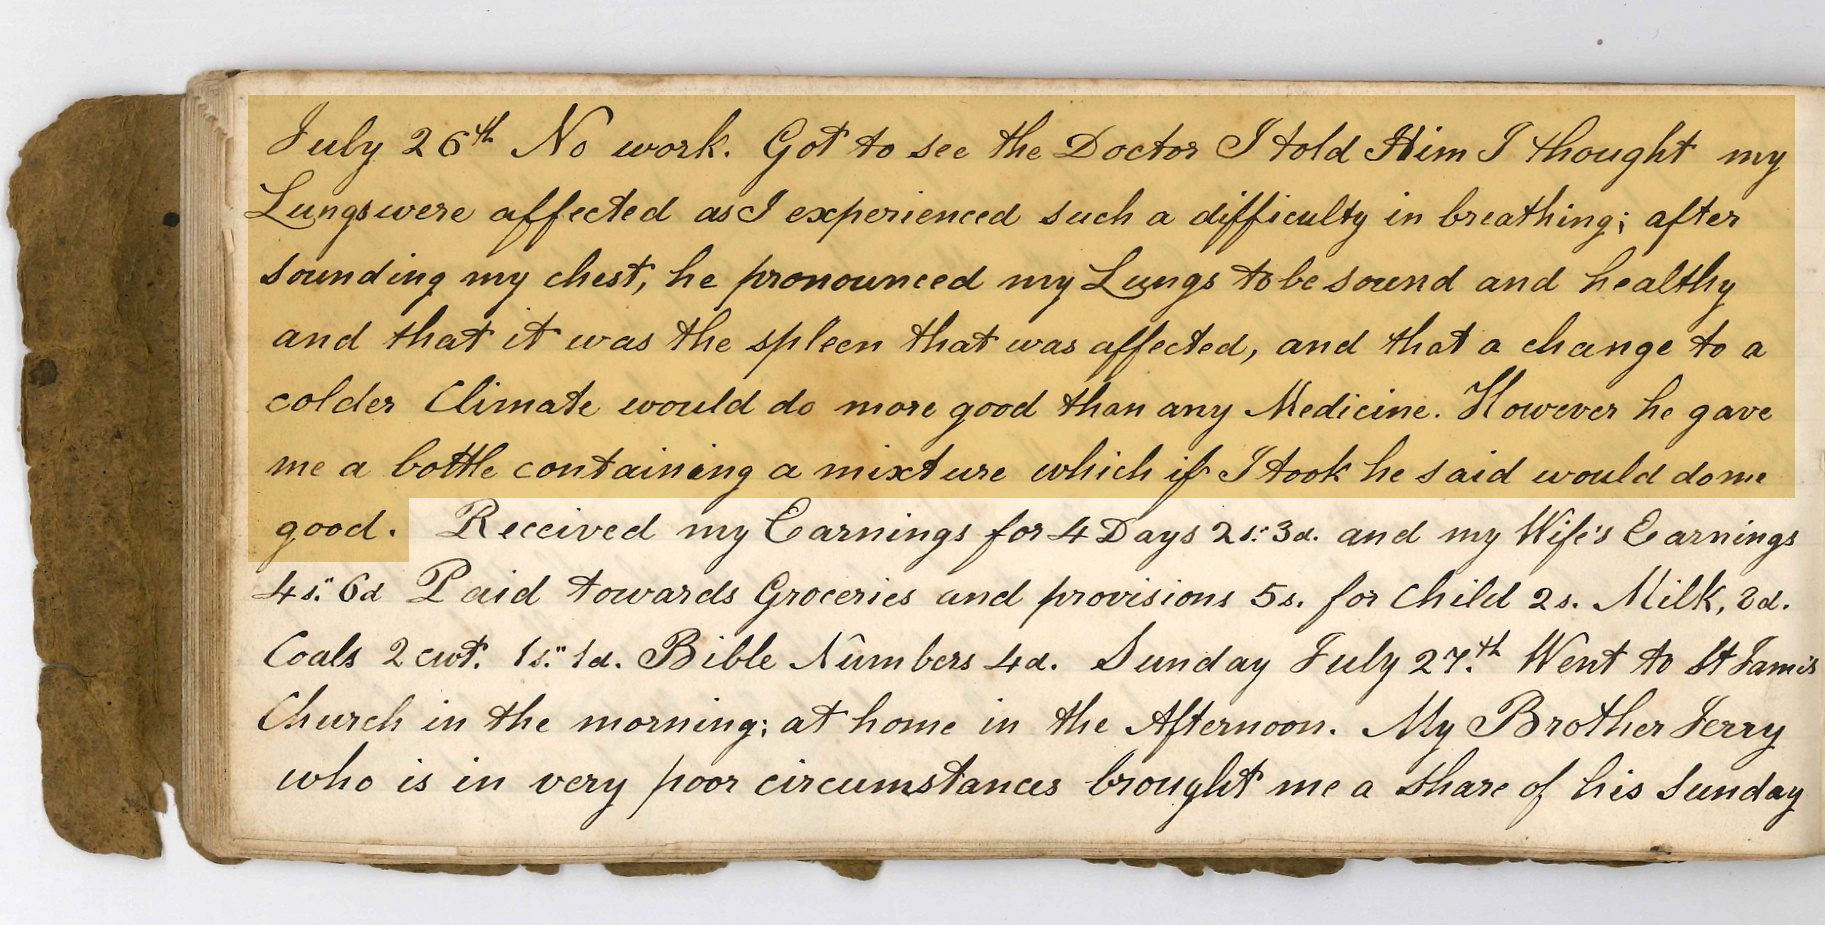 July 26th No work. Got to see the Doctor I told Him I thought my
Lungs were affected as I experienced such a difficulty in breathing; after
sounding my chest, he pronounced my Lungs to be sound and healthy
and that it was the spleen that was affected, and that a change to a
colder Climate would do more good than any Medicine. However he gave
me a bottle containing a mixture which if I took he said would do me
good. Received my Earnings for 4 Days 2s. 3d. and my Wife's Earnings
4s. 6d Paid towards Groceries and provisions 5s. for Child 2s. Milk,
Coals 2 cwt. 1s. 1d. Bible Numbers 4d. Sunday July 27.th Went to St James
Church in the morning; at home in the Afternoon. My Brother Jerry
who is in very poor circumstances brought me a share of his Sunday